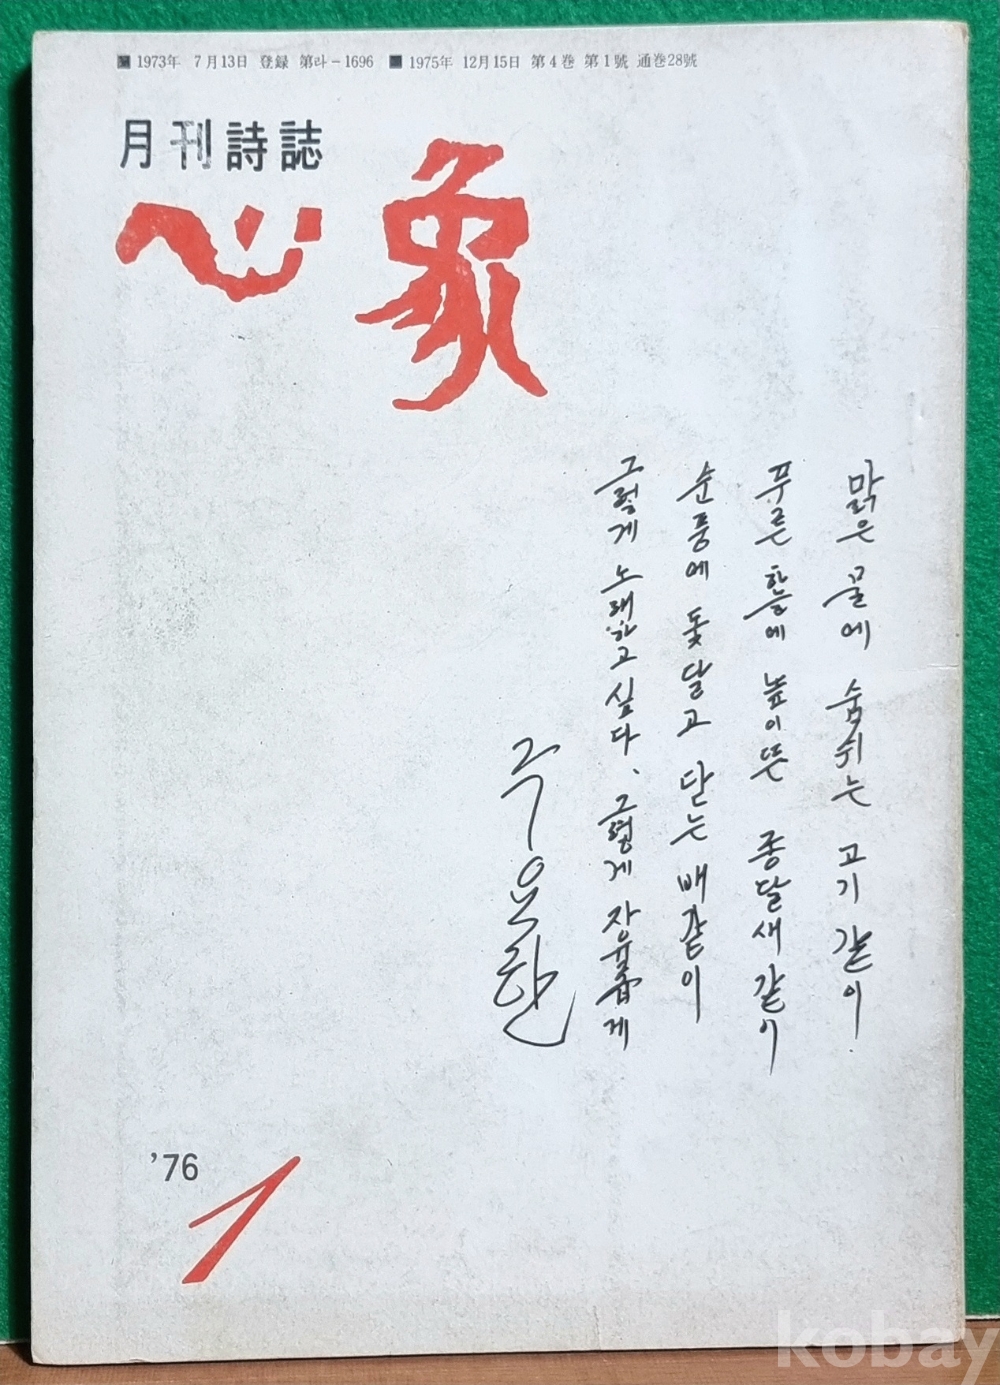 ■ 1973年 7月13日 登録 第라-1696 ■ 1975年 12月15日 第4巻 第1號 通巻28號
月刊詩誌
心象
맑은 물에 숨쉬는 고기 같이
푸른 하늘에 높이 뜬 종달새 같이
순풍에 돛 달고 닫는 배 같이
그렇게 노래하고 싶다. 그렇게 자유롭게
주요한
'76
1
kobay